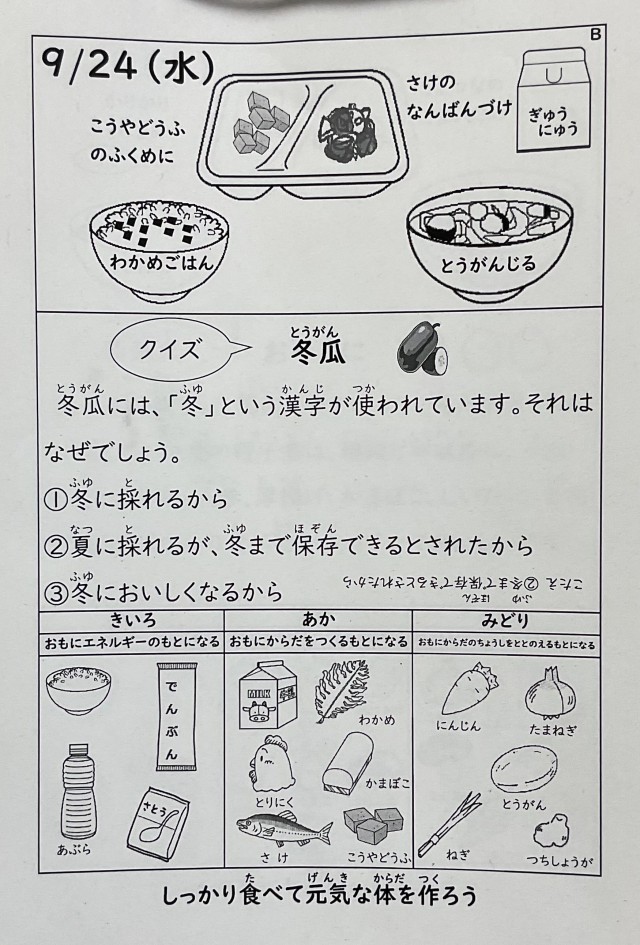 B
9/24(水)
こうやどうふ
のふくめに
さけの
なんばんづけ
ぎゅう
にゅう
わかめごはん
とうがんじる
クイズ
とうがん
冬瓜
とうがん ふゆ かんじ つか
冬瓜には、「冬」という漢字が使われています。それは
なぜでしょう。
ふゆ と
①冬に採れるから
なつ と ふゆ ほぞん
②夏に採れるが、冬まで保存できるとされたから
ふゆ
③冬においしくなるから
ふゆ ほぞん
こたえ ②冬まで保存できるとされたから
きいろ
おもにエネルギーのもとになる
あか
おもにからだをつくるもとになる
みどり
おもにからだのちょうしをととのえるもとになる
でんぷん
あぶら
さとう
MILK
わかめ
とりにく
かまぼこ
さけ
こうやどうふ
にんじん
たまねぎ
とうがん
ねぎ
つちしょうが
た げんき からだ つく
しっかり食べて元気な体を作ろう